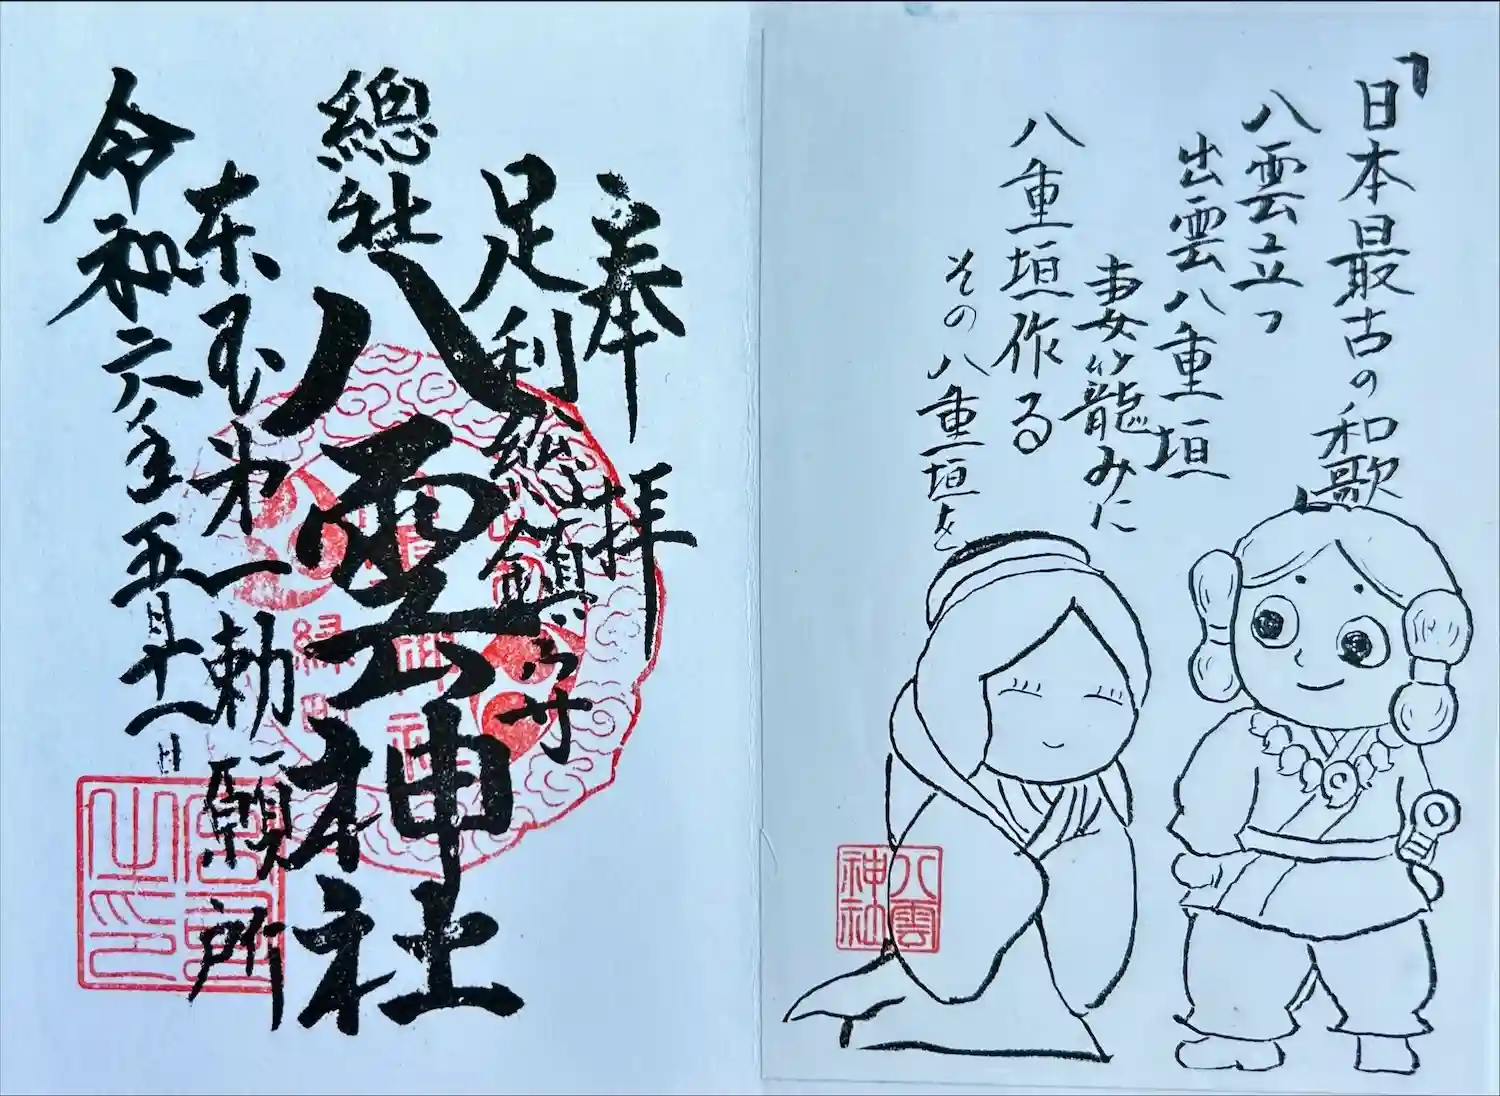 「日本最古の和歌」
八雲立つ
出雲八重垣
妻籠みに
八重垣作る
その八重垣を
八雲
神社
奉拝
足利総鎮守
總社
八雲神社
東国第一勅願所
令和六年五月十一日